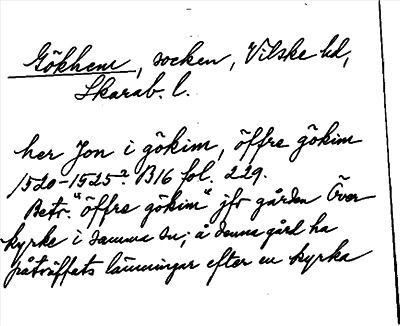 Gökhem, socken, Vilske hd,
Skarab. l.
her Jon i gökim, öffre gökim
1520-1525? B16 fol. 229.
Betr. "öffre gökim" jfr gården Över-
kyrke i samma sn; å denna gård ha
påträffats lämningar efter en kyrka